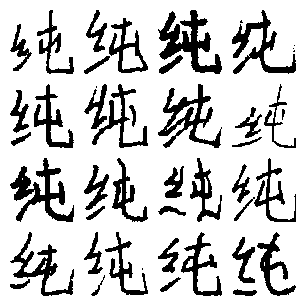 纯纯纯纯
纯纯纯纯
纯纯纯纯
纯纯纯纯